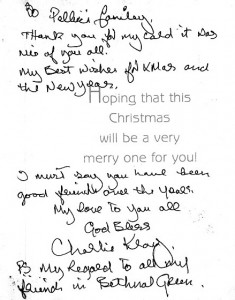 To Pellici family.
Thank you for my card it was
nis of you all.
My Best wishes for XMas and
the New Years.
Hoping that this
Christmas
will be a very
merry one for you!
I must say you have been
good friends over the years.
My love to you all
God Bless
Charlie Kray.
PS My Regard to all my
friends in Bethnal Green.